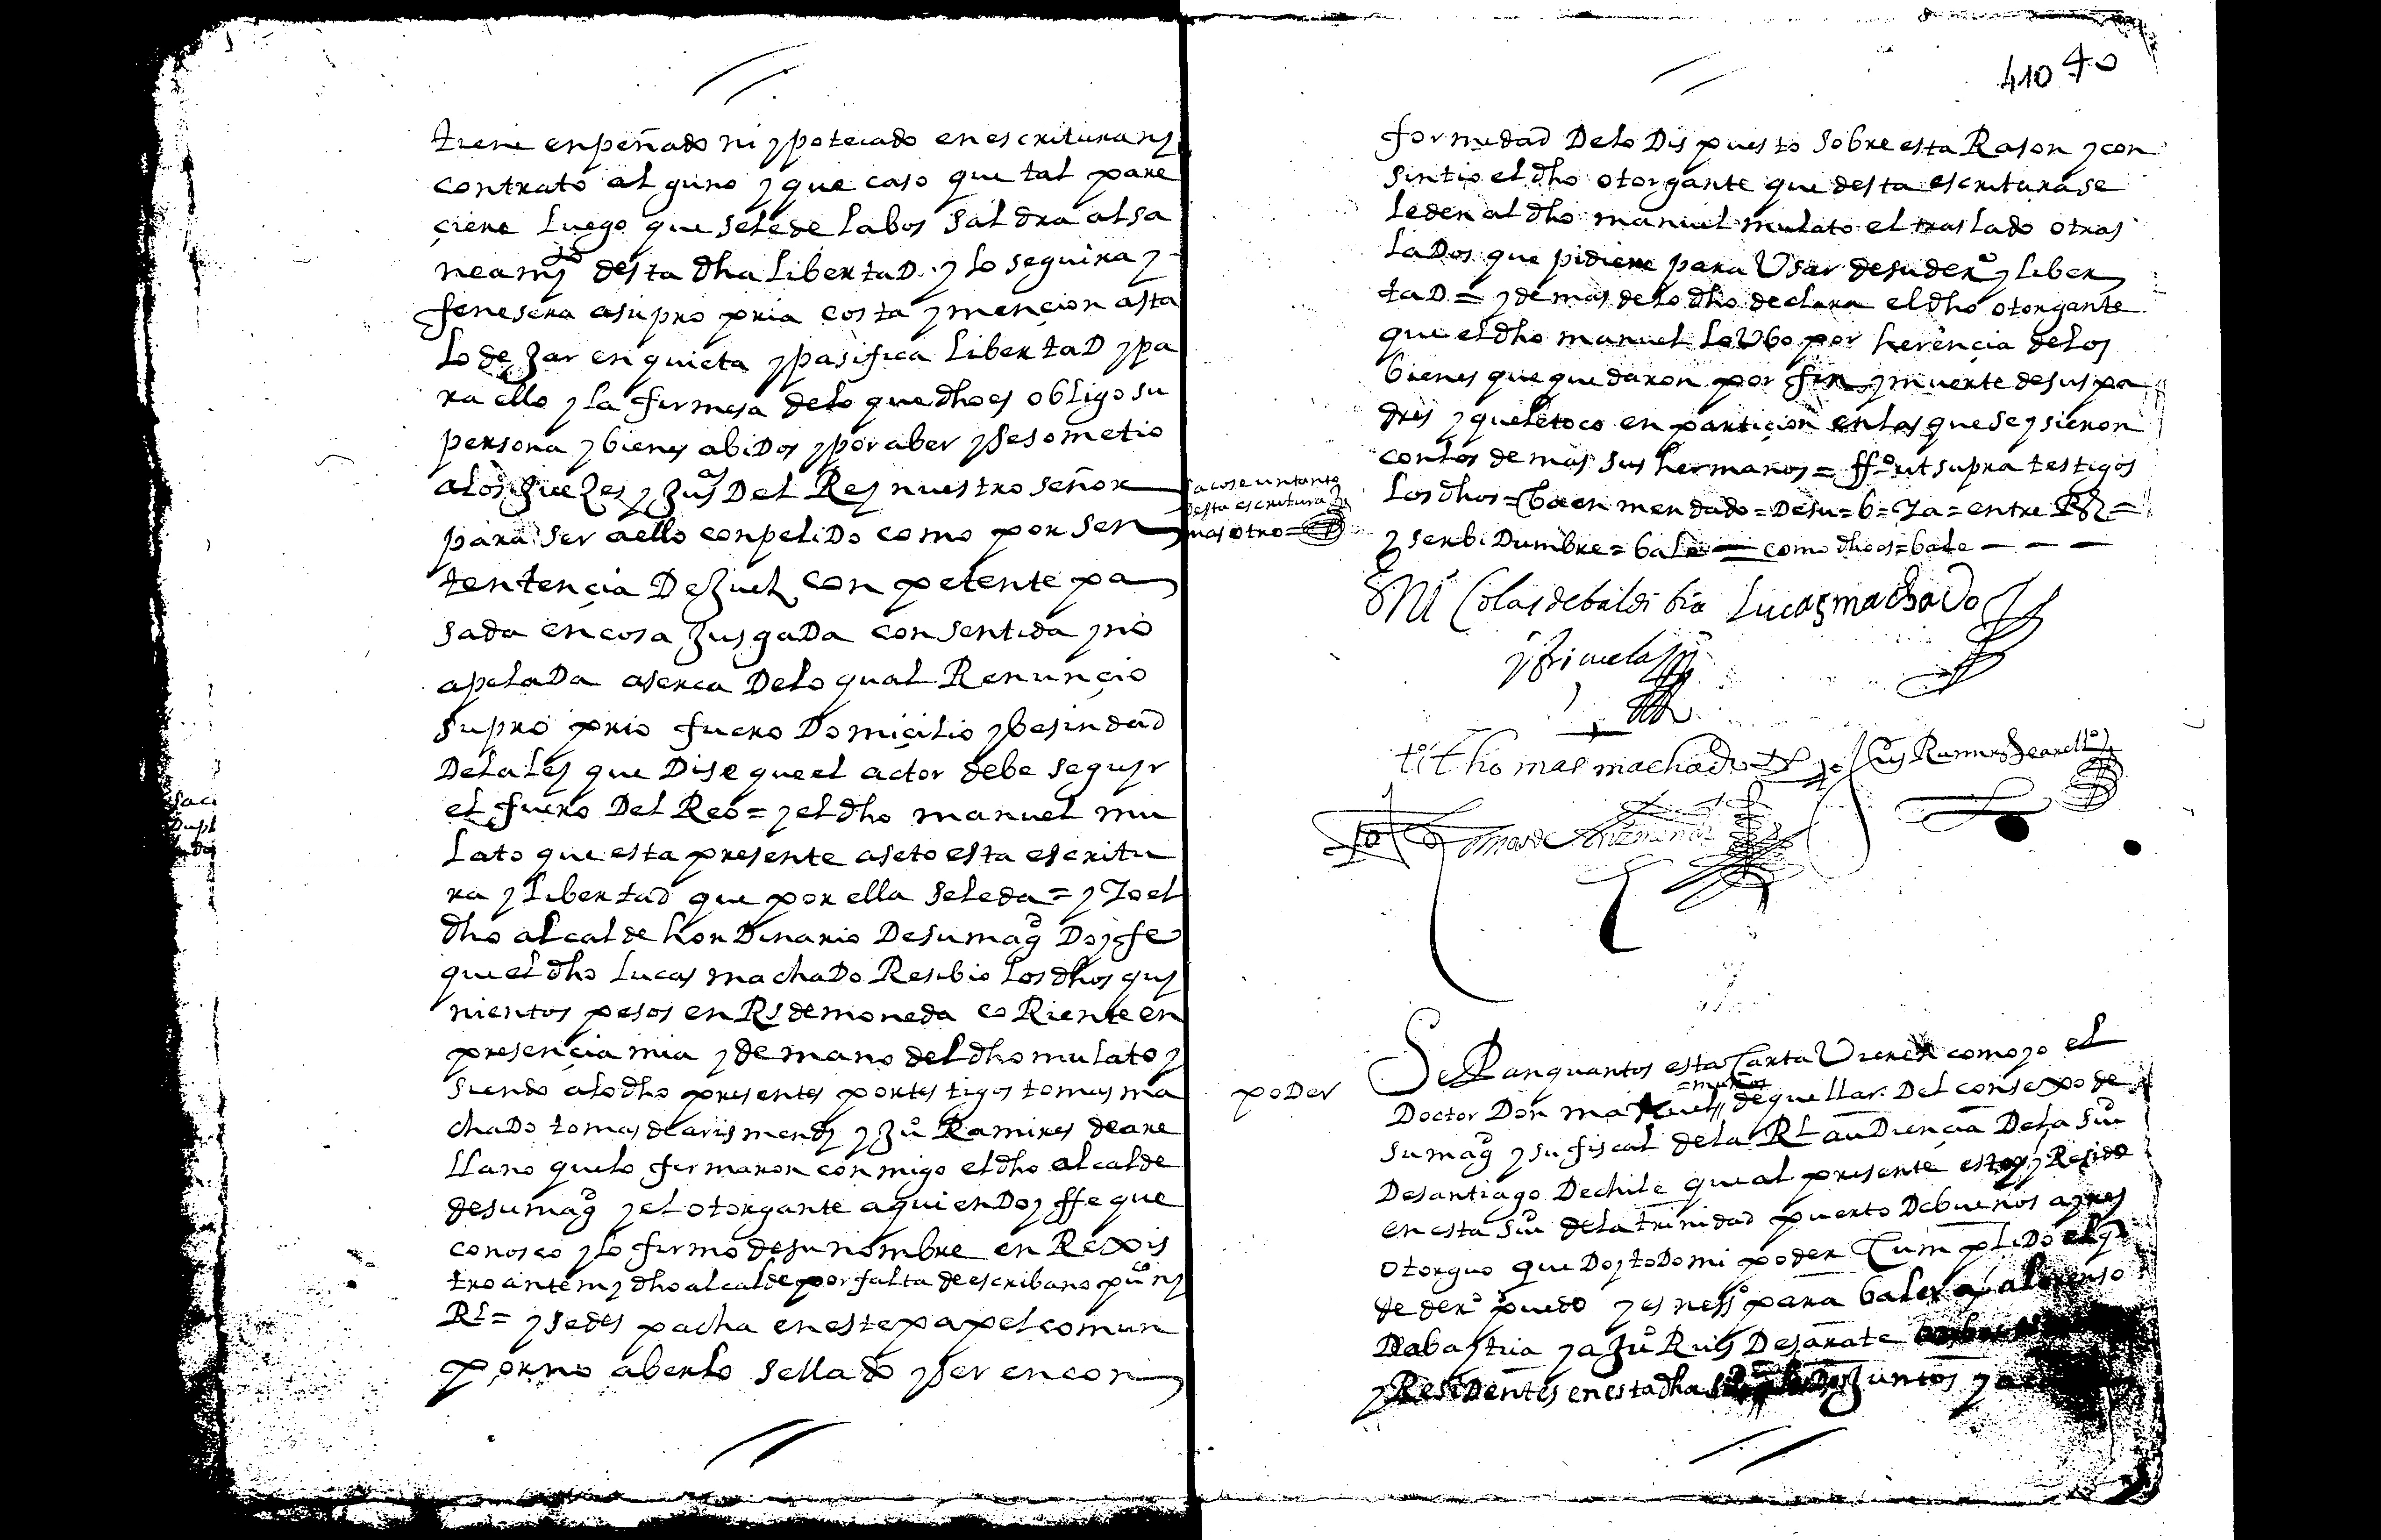 tiene enpeñado ni ypotecado en escritura ny
contrato alguno y que caso que tal pare
çiere luego que se le de la bos saldra al sa
neamyto desta dha libertaD. y lo seguira y
fenesera a su pro pria costa y mençion asta
lo dejar en quieta y pasifica libertaD y pa
ra ello y la firmesa de lo que dho es obligo su
persona y bienes abiDos y por aber y se sometio
a los Jueçes y Jusas Del Rey nuestro señor
para ser a ello conpeliDo como por sen
tentençia De Juez con petente pa
sada en cosa JusgaDa consentida y no
apelaDa aserca De lo qual Renunçio
su pro prio fuero Domiçilio y besindad
De la ley que Dise que el actor debe seguyr
el fuero Del Reo = y el dho manuel mu
lato que esta presente aseto esta escritu
ra y libertad que por ella se le da = y Yo el
dho alcalde horDinario De su magd Doy fe
que el dho lucas machaDo Resibio los dhos quy
nientos pesos en Rs de moneda coRiente en
presençia mia y de mano del dho mulato y
siendo a lo dho presentes por testigos tomas ma
chaDo tomas de arismendy y Juo Ramires de are
llano que lo firmaron con migo el dho alcalde
de su magd y el otorgante a quien Doy ffe que
conosco y lo firmo de su nombre en Rexis
tro ante my dho alcalde por falta de escribano puco ny
Rl = y se des pacha en este papel comun
por no aberlo sellado y ser en con
410 40
formidad De lo Dispuesto sobre esta Rason y con
sintio el dho otorgante que desta escritura se
le den al dho manuel mulato el traslado o tras
laDos que pidiere para Usar de su dero y liber
taD = y demas de lo dho declara el dho otorgante
que el dho manuel lo Ubo por herençia de los
bienes que quedaron por fin y muerte de sus pa
dres y que le toco en partiçion en las que se ysieron
con los demas sus hermanos = ffo ut supra testigos
los dhos = ba en mendado = Desu = b = Ya = entre Rs =
y serbiDumbre = bale = como dho es = bale
sacose un tanto
desta escritura Ju
mas otro =
Ni Colas de baldi bia Lucas machado
y brizuela
to thomas machado to Juo Ramires de arello
to tomas de arismendi
poDer
Sepan quantos esta Carta Vieren como yo el
= muños
Doctor Don manuel de quellar. Del consexo de
su magd y su fiscal de la Rl auDiençia De la siu
De santiago De chile que al presente estoy y Resido
en esta siu de la trinidad puerto De buenos ayres
otorguo que Doy toDo mi poder CumpliDo el q
de dero puedo y es nesso para baler a alonso
De abastua y a Juo Ruis De sarate
y ResiDentes en esta dha Juntos y a